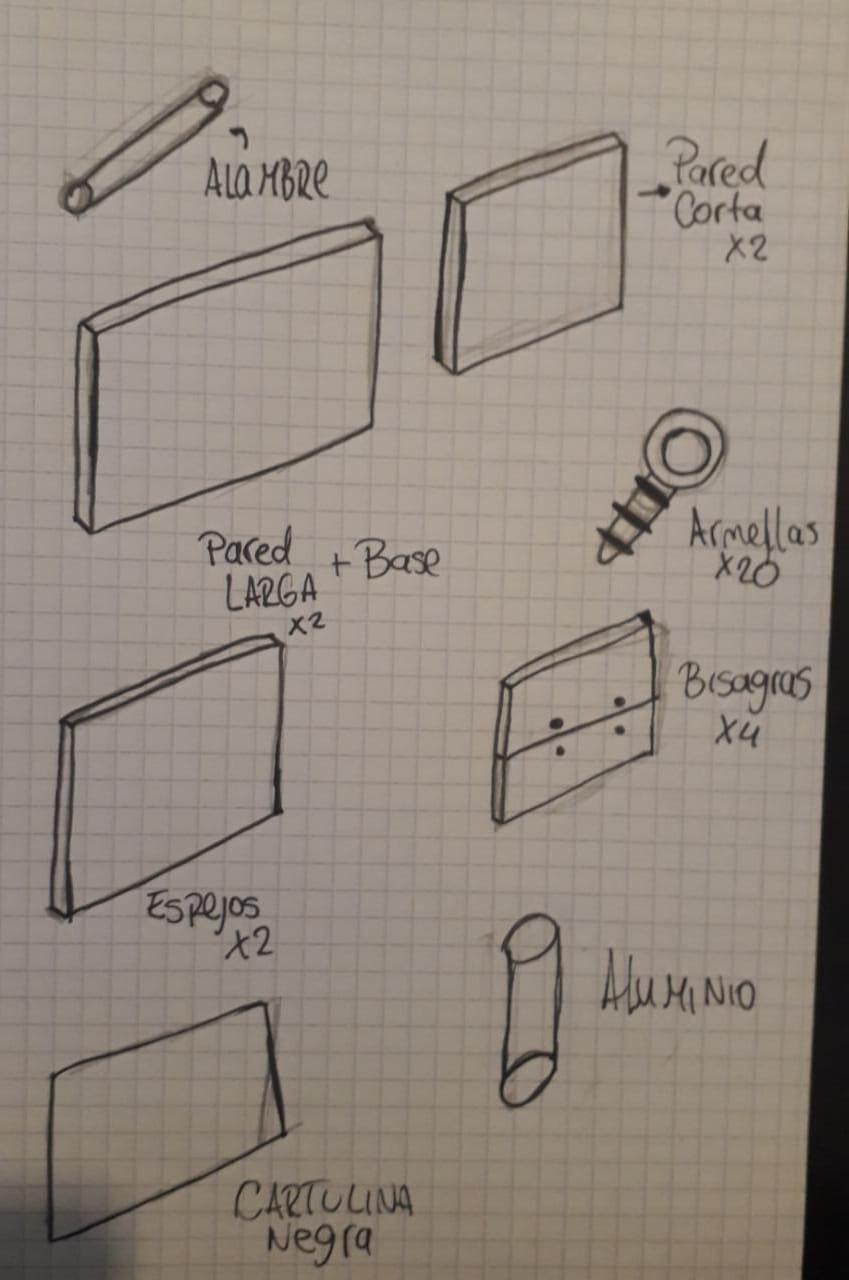 ALAMBRE
Pared
Corta
x2
Pared + Base
LARGA
x2
Armellas
x20
Bisagras
x4
Espejos
x2
ALUMINIO
CARTULINA
Negra